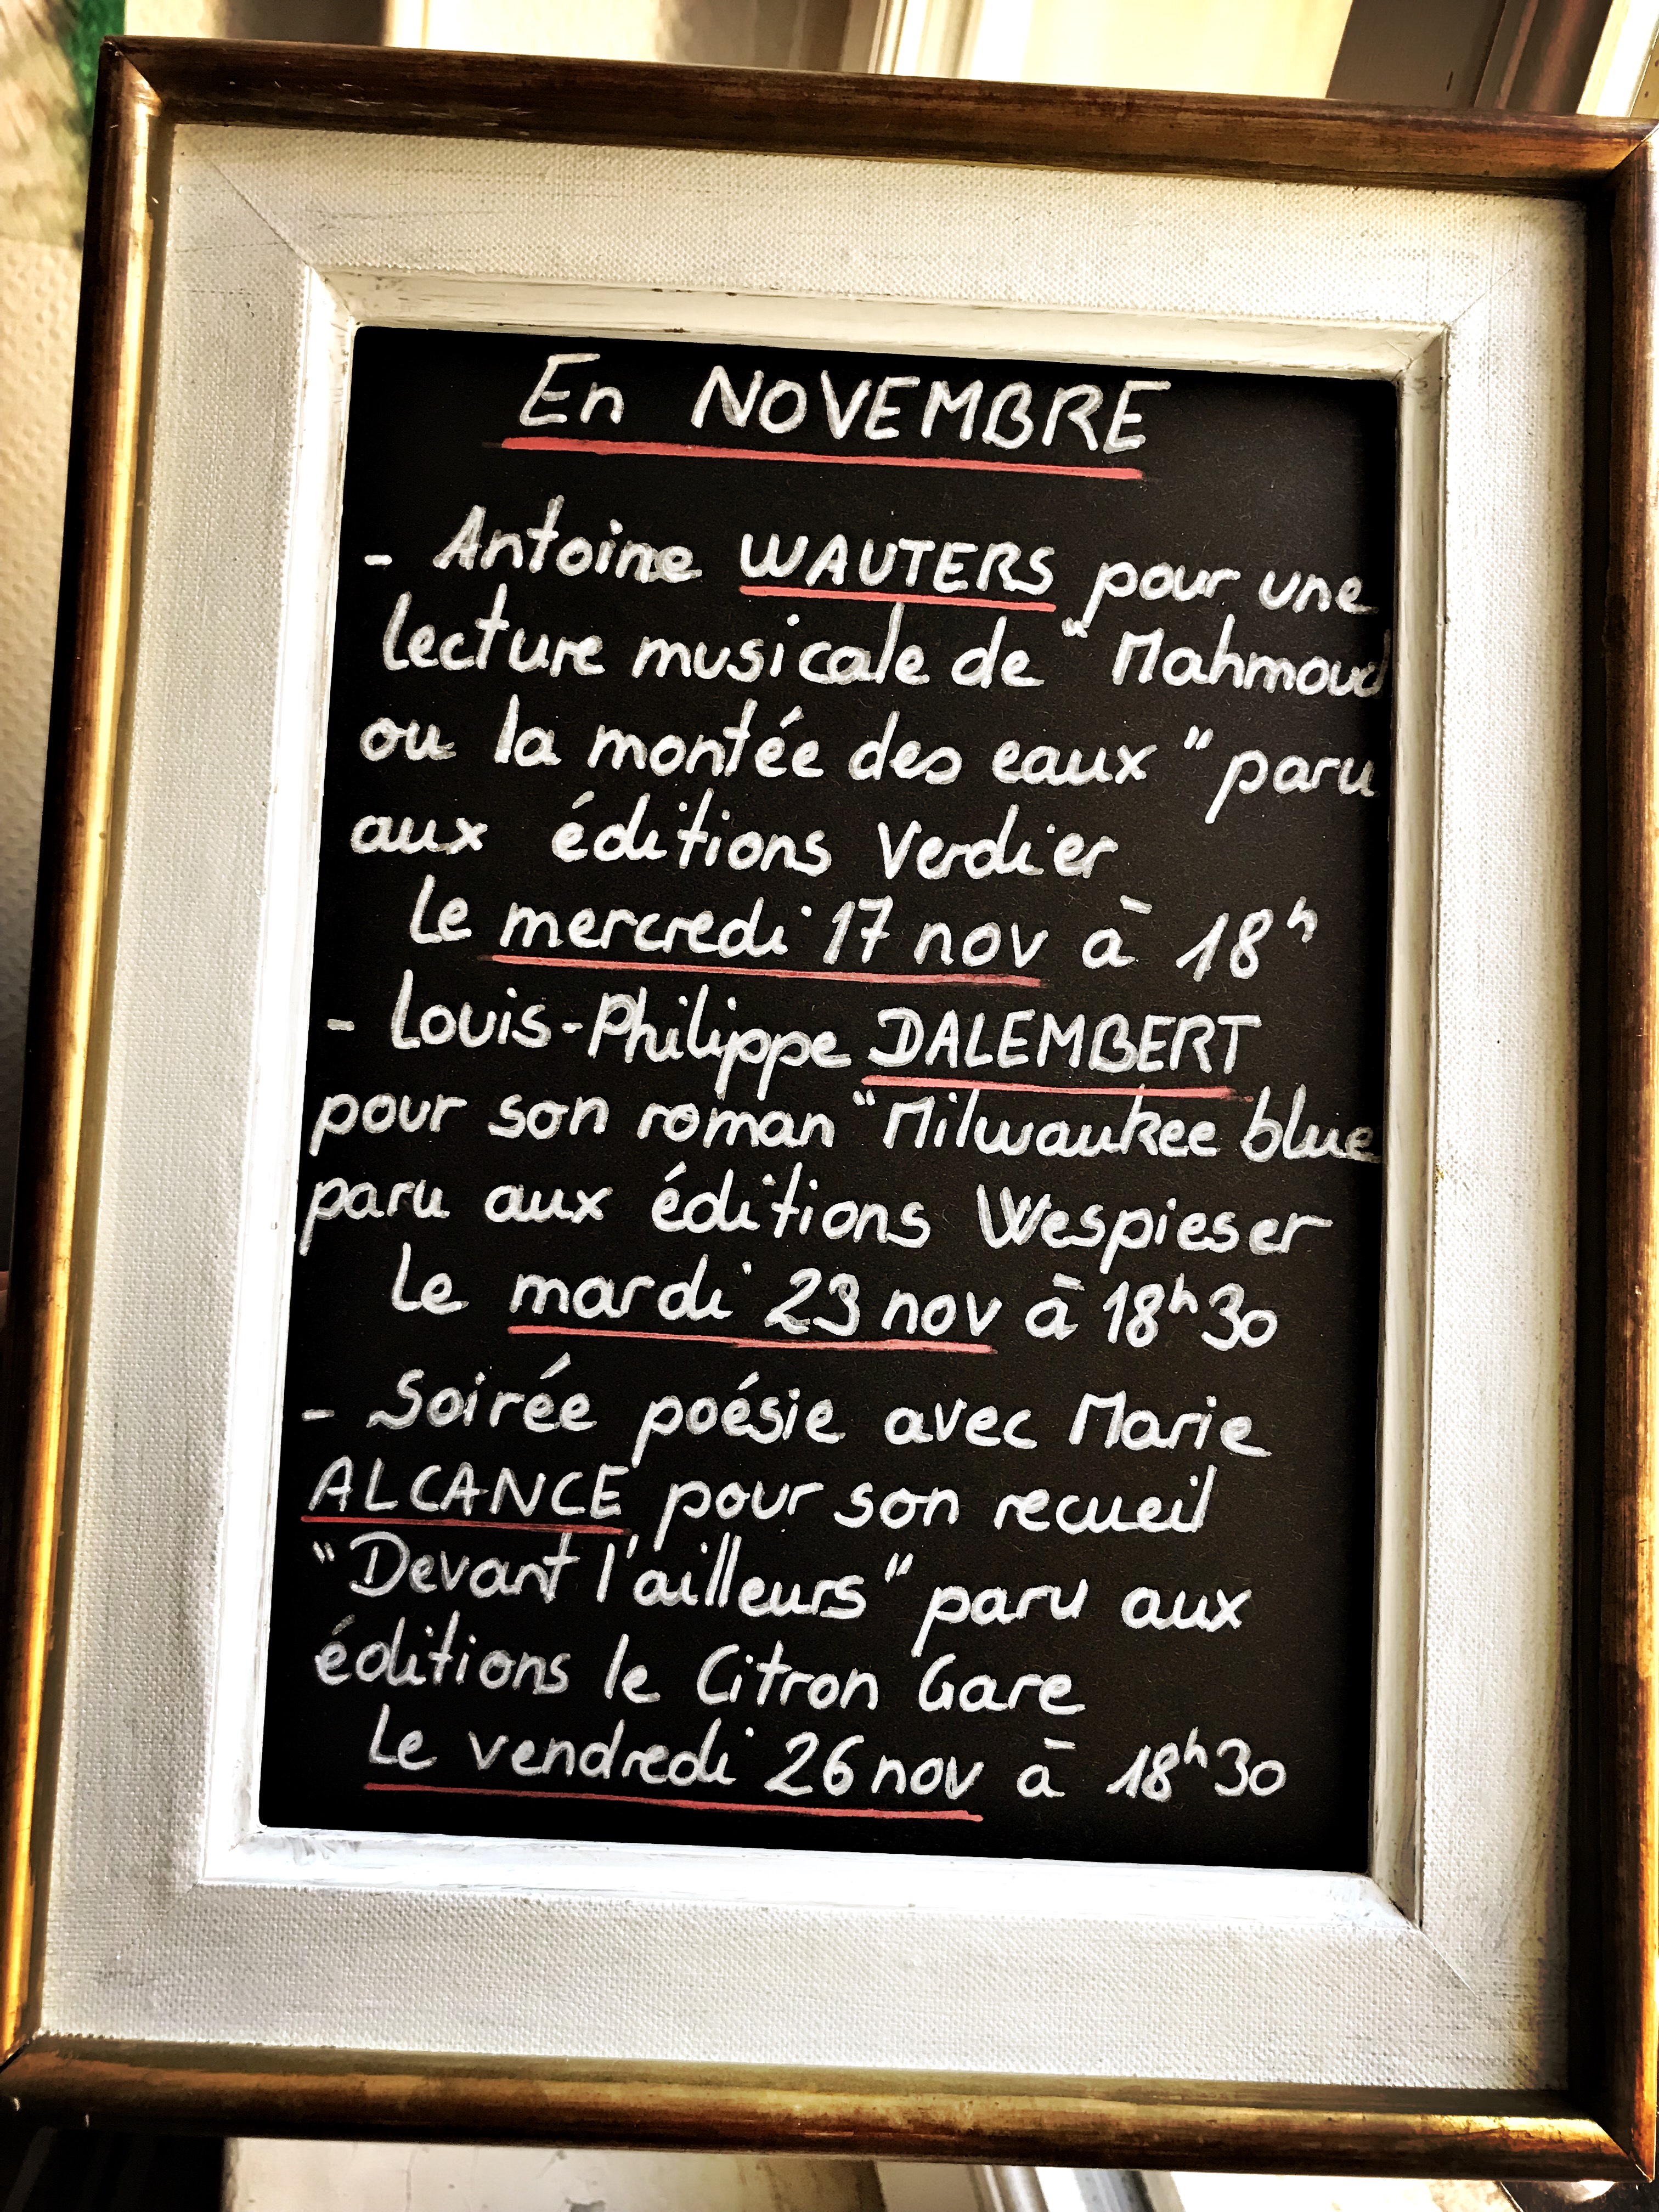 En NOVEMBRE
- Antoine WAUTERS pour une
lecture musicale de "Mahmoud
ou la montée des eaux" paru
aux éditions Verdier
Le mercredi 17 nov à 18h
- Louis-Philippe DALEMBERT
pour son roman "Milwaukee blue
paru aux éditions Wespieser
Le mardi 23 nov à 18h30
- Soirée poésie avec Marie
ALCANCE pour son recueil
"Devant l'ailleurs" paru aux
éditions le Citron Gare
Le vendredi 26 nov à 18h30